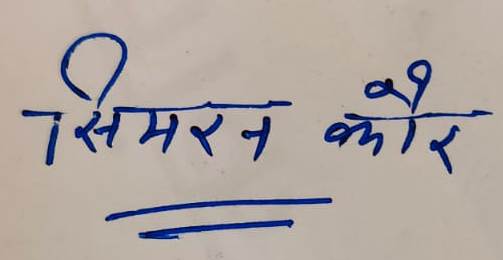 सिमरन कौर